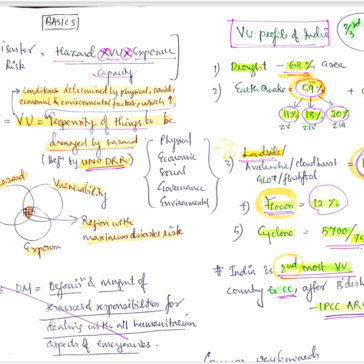 BASICS
Disaster Risk = Hazard × VU × Exposure
Capacity
conditions determined by physical, social,
economic & environmental factors, which ↑
= VU = Propensity of things to be
damaged by hazard
(Defⁿ by UNDRR)
Physical
Economic
Social
Governance
Environmental
Hazard
Vulnerability
Region with
maximum disaster risk
DM = Defensive & mngmt of
resources & responsibilities for
dealing with all humanitarian
aspects of emergencies.
VU profile of India
2/3rd
1) Drought - 68% area
2) Earthquake - 59%
11% 18% 20%
ZV ZIV ZIII
3) Landslide/
Avalanche/cloudburst
GLOF/flashflood
4) Flood - 12%
5) Cyclone - 5700/
# India is 2nd most VU
country to CC, after B'desh
- IPCC AR